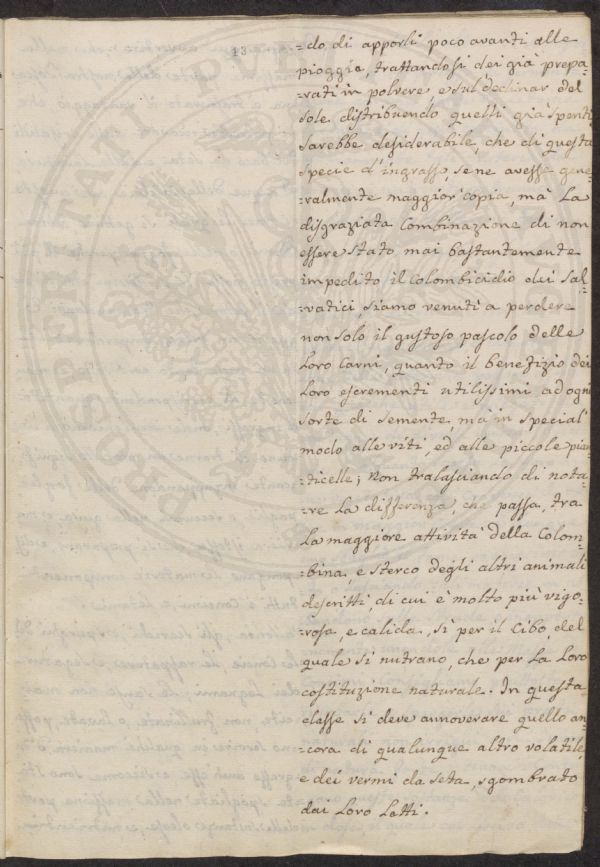 13.
=do, di apporli poco avanti alle
pioggie, trattandosi dei già prepa=
=rati in polvere e sul declinar del
sole distribuendo quelli già spenti,
sarebbe desiderabile, che di questa
specie d'ingrasso, se ne avesse gene=
=ralmente maggior copia, mà La
disgraziata Combinazione di non
essere stato mai bastantemente
impedito il Colombicidio dei sal=
=vatici, siamo venuti a perdere
non solo il gustoso pascolo delle
Loro Carni, quanto il benefizio dei
Loro escrementi utilissimi ad ogni
sorte di semente, mà in special
modo alle viti, ed alle piccole pian=
=ticelle; Non tralasciando di nota=
=re La differenza, che passa, tra
La maggiore attività della Colom=
=bina, e sterco degli altri animali
descritti, di cui è molto più vigo=
=rosa, e calida, sì per il Cibo, del
quale si nutrano, che per La Loro
costituzione naturale. In questa
classe si deve annoverare quello an
=cora di qualunque altro volatile,
e dei vermi da seta, sgombrato
dai Loro Letti.
PROSPERITATI PUB